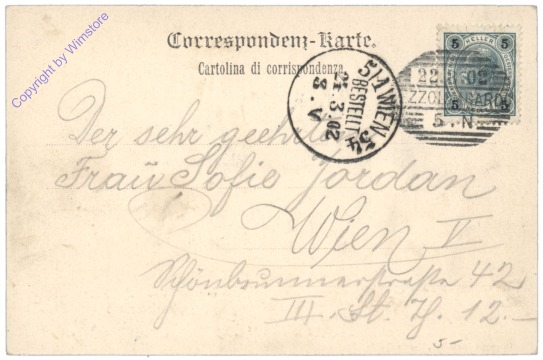 Copyright by Wimstore
Correspondenz-Karte.
Cartolina di corrispondenza.
5
HELLER
5
5
5
5/1 WIEN 54
BESTELLT
3.02
8. V
5. N.
Der sehr geehrten
Frau Sofie Jordan
Wien V
Schönbrunnerstraße 42
III. St. Th. 12.—
5-